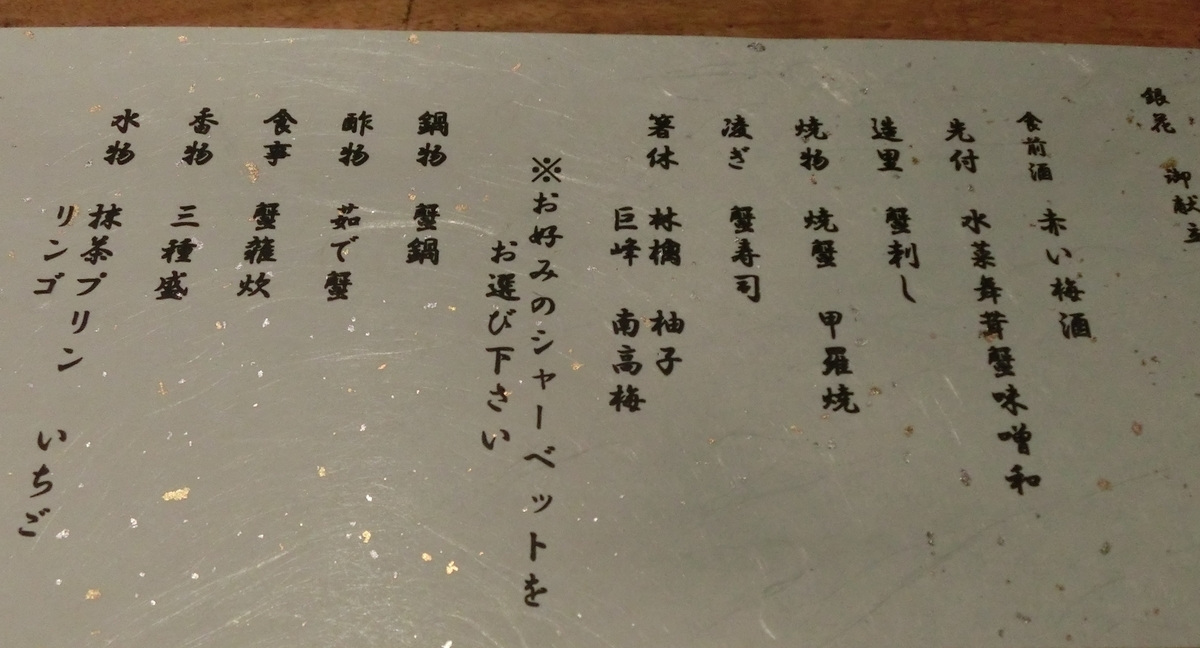 銀花 御献立
食前酒 赤い梅酒
先付 水菜舞茸蟹味噌和
造里 蟹刺し
焼物 焼蟹 甲羅焼
凌ぎ 蟹寿司
箸休 林檎 柚子
巨峰 南高梅
※お好みのシャーベットを
お選び下さい
鍋物 蟹鍋
酢物 茹で蟹
食事 蟹雑炊
香物 三種盛
水物 抹茶プリン
リンゴ いちご